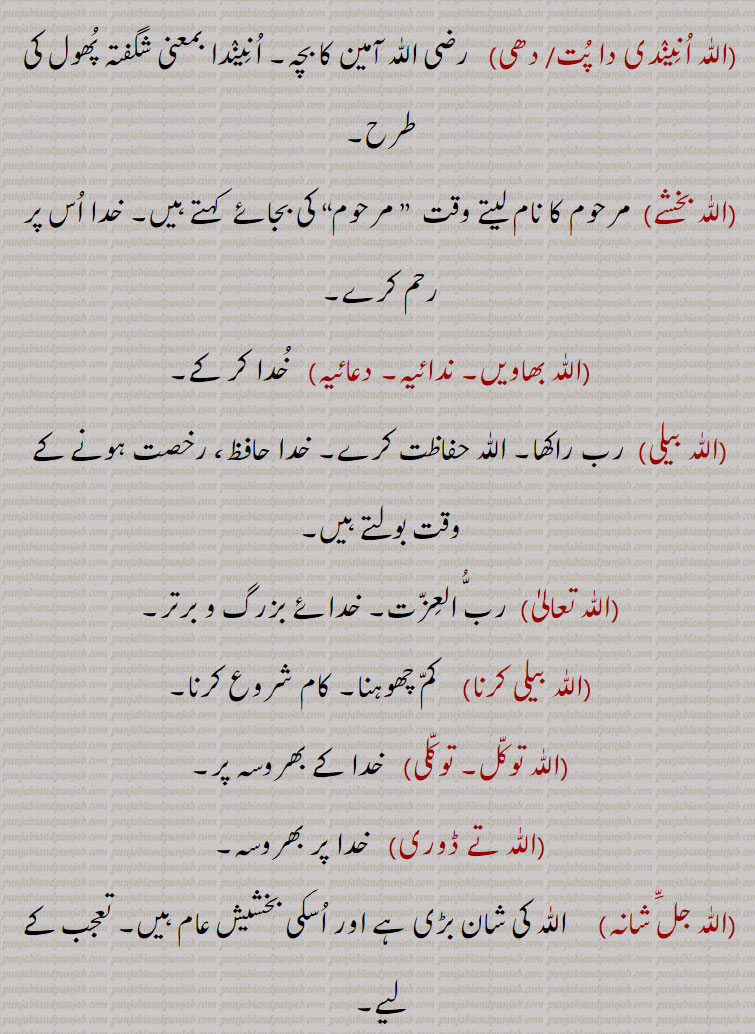 (اللہ اُنِیندی دا پُت/ دھی) رضی اللہ آمین کا بچہ۔ اُنِیندا بمعنی شگفتہ پُھول کی
طرح۔
(اللہ بخشے) مرحوم کا نام لیتے وقت ”مرحوم“ کی بجائے کہتے ہیں۔ خدا اُس پر
رحم کرے۔
(اللہ بھاویں۔ ندائیہ۔ دعائیہ) خُدا کر کے۔
(اللہ بیلی) رب راکھا۔ اللہ حفاظت کرے۔ خدا حافظ، رخصت ہونے کے
وقت بولتے ہیں۔
(اللہ تعالیٰ) ربُّ العِزّت۔ خدائے بزرگ و برتر۔
(اللہ بیلی کرنا) کمّ چھوہنا۔ کام شروع کرنا۔
(اللہ توکّل۔ توکّلی) خدا کے بھروسہ پر۔
(اللہ تے ڈوری) خدا پر بھروسہ۔
(اللہ جلِّ شانہ) اللہ کی شان بڑی ہے اور اُسکی بخشیش عام ہیں۔ تعجب کے
لیے۔